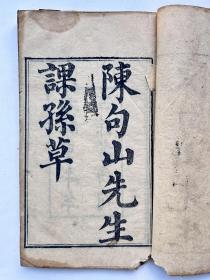 陳句山先生
課孫草